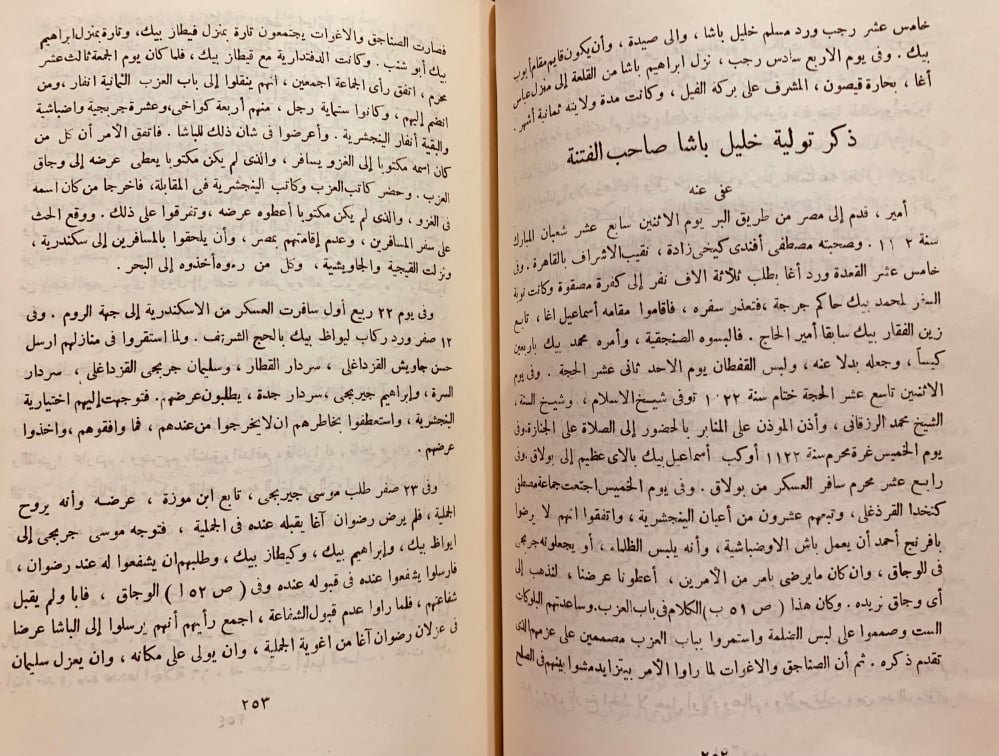 خامس عشر رجب ورد مسلم خليل باشا ، والى صيدة ، وأن يكون قايم مقام أيوب
بيك . وفى يوم الاربع سادس رجب ، نزل ابراهيم باشا من القلعة إلى منزل عباس
أغا ، بحارة قيصون ، المشرف على بركه الفيل ، وكانت مدة ولايته ثمانية أشهر .
ذكر تولية خليل باشا صاحب الفتنة
عفى عنه
أمير ، قدم إلى مصر من طريق البر يوم الاثنين سابع عشر شعبان المبارك
سنة ١١ . وصحبته مصطفى أفندى كيخى زادة ، نقيب الاشراف بالقاهرة . وفى
خامس عشر القعدة ورد أغا بطلب ثلاثة الاف نفر إلى كفرة مصقوة وكانت نوبة
السفر لمحمد بيك حاكم جرجة ، فتعذر سفره ، فاقاموا مقامه أسماعيل اغا ، تابع
زين الفقار بيك سابقا أمير الحاج . فالبسوه الصنجقية ، وأمره محمد بيك باربعين
كيساً ، وجعله بدلا عنه ، ولبس القفطان يوم الاحد ثانى عشر الحجة . وفى يوم
الاثنين تاسع عشر الحجة ختام سنة ١٠٢٢ توفى شيخ الاسلام ، وشيخ السنة ،
الشيخ محمد الرزقانى ، وأذن الموذن على المنابر بالحضور إلى الصلاة على الجنازة وفى
يوم الخميس غرة محرم سنة ١١٢٢ أوكب أسماعيل بيك بالاى عظيم إلى بولاق ، وفى
رابع عشر محرم سافر العسكر من بولاق . وفى يوم الخميس اجتمعت جماعة مصطفى
كتخدا القزدغلى ، وتبعهم عشرون من أعيان الينجشرية ، واتفقوا انهم لا يرضوا
بافرنج أحمد أن يعمل باش الاوضباشية ، وأنه يلبس الظلماء ، أو يجعلونه جربجى
فى الوجاق ، وان كان ما يرضى بامر من الآمرين ، أعطونا عرضنا ، لنذهب إلى
أى وجاق نريده . وكان هذا ( ص ٥١ ب ) الكلام فى باب العزب . وساعدتهم البلوكات
الست وصمموا على لبس الضلمة واستمروا بباب العزب مصممين على عزمهم الذى
تقدم ذكره . ثم أن الصناجق والاغوات لما راوا الآمر بيتزايد مشوا بينهم فى الصلح
٢٥٢
فصارت الصناجق والاغوات يجتمعون تارة بمنزل قيطاز بيك ، وتارة بمنزل ابراهيم
بيك أبو شنب . وكانت الدفتدارية مع قيطاز بيك ، فلما كان يوم الجمعة ثالث عشر
محرم ، اتفق رأى الجماعة اجمعين ، انهم ينقلوا إلى باب العزب الثمانية انفار ، ومن
انضم إليهم ، وكانوا ستماية رجل ، منهم أربعة كواخى ، وعشرة جربجية واضباشية
والبقية أنفار الينجشرية . وأعرضوا فى شان ذلك للباشا . فاتفق الآمر أن كل من
كان اسمه مكتوبا إلى الغزو يسافر ، والذى لم يكن مكتوبا يعطى عرضه إلى وجاق
العزب . وحضر كاتب العزب وكاتب الينجشرية فى المقابلة ، فاخرجا من كان اسمه
فى الغزو ، والذى لم يكن مكتوبا أعطوه عرضه ، وتفرقوا على ذلك . ووقع الحث
على سفر المسافرين ، وعدم إقامتهم بمصر ، وأن يلحقوا بالمسافرين إلى سكندرية ،
ونزلت القبجية والجاويشية ، وكل من رءوه أخذوه إلى البحر .
وفى يوم ٢٢ ربيع أول سافرت العسكر من الاسكندرية إلى جهة الروم . وفى
١٢ صفر ورد ركاب ايواظ بيك بالحج الشريف . ولما استقروا فى منازلهم ارسل
حسن جاويش القزداغلى ، سردار القطار ، وسليمان جربجى القزداغلى ، سردار
السرة ، وإبراهيم جيربجى ، سردار جدة ، يطلبون عرضهم . فتوجهت إليهم اختيارية
الينجشرية ، واستعطفوا بخاطرهم ان لايخرجوا من عندهم ، فما وافقوهم ، واخذوا
عرضهم .
وفى ٢٣ صفر طلب موسى جيربجى ، تابع ابن موزة ، عرضه وأنه يروح
الجملية ، فلم يرض رضوان آغا يقبله عنده فى الجملية ، فتوجه موسى جربجى إلى
ايواظ بيك ، وإبراهيم بيك ، وكيطاز بيك ، وطلبهم ان يشفعوا له عند رضوان ،
فارسلوا يشفعوا عنده فى قبوله عنده وفى ( ص ٥٢ ا ) الوجاق ، فابا ولم يقبل
شفاعتهم ، فلما راوا عدم قبول الشفاعة ، اجمع رأيهم أنهم يرسلوا إلى الباشا عرضا
فى عزلان رضوان آغا من اغوية الجملية ، وان يولى على مكانه ، وان يعزل سليمان
٢٥٣